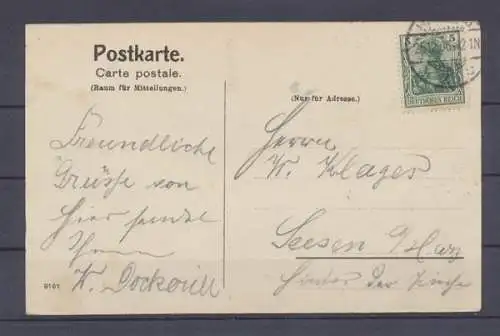 Postkarte.
Carte postale.
(Raum für Mitteilungen.)
(Nur für Adresse.)
5
DEUTSCHES REICH
Freundliche
Grüsse von
hier sendet
Ihnen
W.
Herrn
W. Klages
Seesen a/Harz
hinter der Kirche
9101